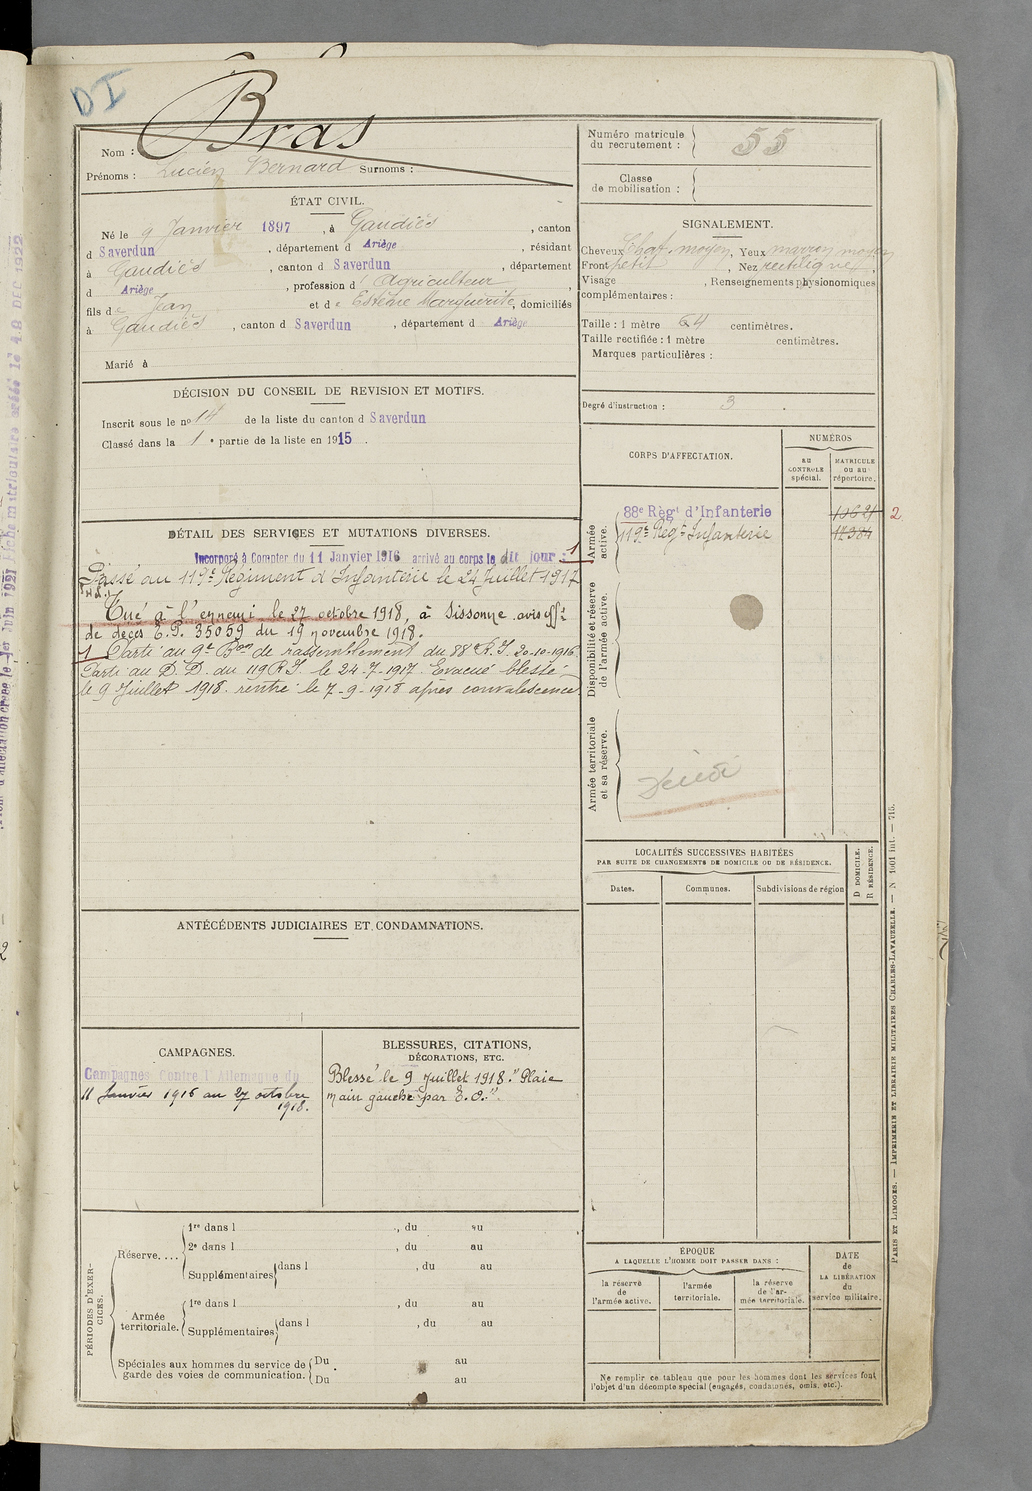 DI
Bras
Nom :
Prénoms : Lucien Bernard Surnoms :
ÉTAT CIVIL.
Né le 9 Janvier 1897, à Gaudiès, canton
d Saverdun, département d Ariège, résidant
à Gaudiès, canton d Saverdun, département
d Ariège, profession d' Agriculteur,
fils de Jean et de Estèbe Marguerite, domiciliés
à Gaudiès, canton d Saverdun, département d Ariège
Marié à
DÉCISION DU CONSEIL DE REVISION ET MOTIFS.
Inscrit sous le no 14 de la liste du canton d Saverdun
Classé dans la 1e partie de la liste en 1915.
DÉTAIL DES SERVICES ET MUTATIONS DIVERSES.
Incorporé à Compter du 11 Janvier 1916 arrivé au corps le dit jour 1
Passé au 119e Régiment d'Infanterie le 24 Juillet 1917
Tué à l'ennemi le 27 octobre 1918, à Sissonne avis offel
de décès E.P. 35059 du 19 novembre 1918.
1 Parti au 9e Bon de rassemblement du 88e R.I. 20-10-1916
Parti au D.D. du 119 R.I. le 24-7-1917. Evacué blessé
le 9 Juillet 1918. rentré le 7-9-1918 après convalescence
ANTÉCÉDENTS JUDICIAIRES ET CONDAMNATIONS.
CAMPAGNES.
Campagnes Contre l'Allemagne du
11 Janvier 1916 au 27 octobre
1918.
BLESSURES, CITATIONS,
DÉCORATIONS, ETC.
Blessé le 9 Juillet 1918. "Plaie
main gauche par E.O.".
PÉRIODES D'EXERCICES.
Réserve....
1re dans l , du au
2e dans l , du au
Supplémentaires dans l , du au
Armée territoriale.
1re dans l , du au
Supplémentaires dans l , du au
Spéciales aux hommes du service de garde des voies de communication.
Du au
Du au
Numéro matricule du recrutement : 55
Classe de mobilisation :
SIGNALEMENT.
Cheveux Chat. moyen, Yeux marron moyen
Front petit, Nez rectiligne,
Visage , Renseignements physionomiques
complémentaires :
Taille : 1 mètre 64 centimètres.
Taille rectifiée : 1 mètre centimètres.
Marques particulières :
Degré d'instruction : 3.
CORPS D'AFFECTATION.
NUMÉROS
AU CONTROLE spécial.
MATRICULE ou au répertoire.
Armée active.
88e Régt d'Infanterie
119e Régt Infanterie
2
Disponibilité et réserve de l'armée active.
Armée territoriale et sa réserve.
LOCALITÉS SUCCESSIVES HABITÉES
PAR SUITE DE CHANGEMENTS DE DOMICILE OU DE RÉSIDENCE.
Dates.
Communes.
Subdivisions de région
D DOMICILE.
R RÉSIDENCE.
ÉPOQUE
A LAQUELLE L'HOMME DOIT PASSER DANS :
la réserve de l'armée active.
l'armée territoriale.
la réserve de l'armée territoriale.
DATE de LA LIBÉRATION du service militaire.
Ne remplir ce tableau que pour les hommes dont les services font
l'objet d'un décompte spécial (engagés, condamnés, omis, etc.).
PARIS ET LIMOGES. — IMPRIMERIE ET LIBRAIRIE MILITAIRES CHARLES-LAVAUZELLE. — N 1601 int. — 715.